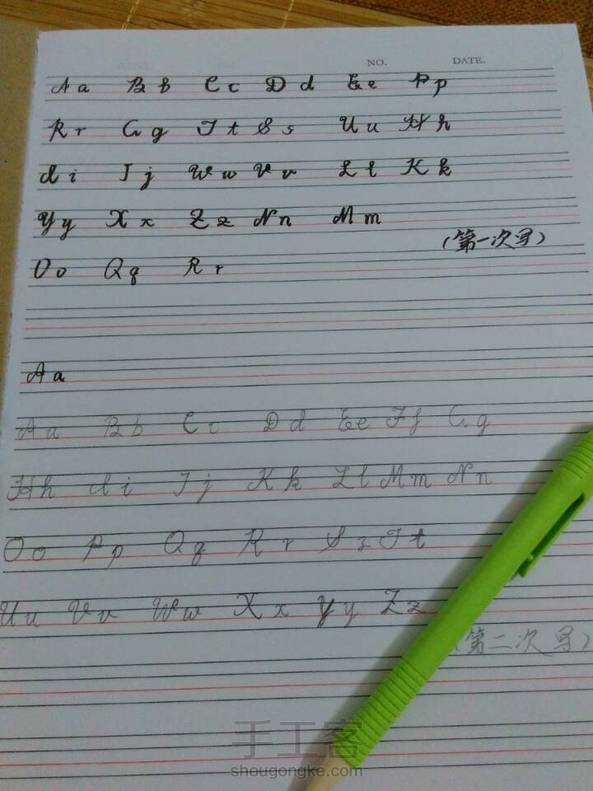 NO. DATE.
Aa Bb Cc Dd Ee Pp
Rr Gg Tt Ss Uu Hh
di Jj Ww Vv Ll Kk
Yy Xx Zz Nn Mm
(第一次写)
Oo Qq Rr
Aa
Aa Bb Cc Dd Ee Ff Gg
Hh di Jj Kk Ll Mm Nn
Oo Pp Qq Rr Ss Tt
Uu Vv Ww Xx Yy Zz
(第二次写)
手工客
shougongke.com